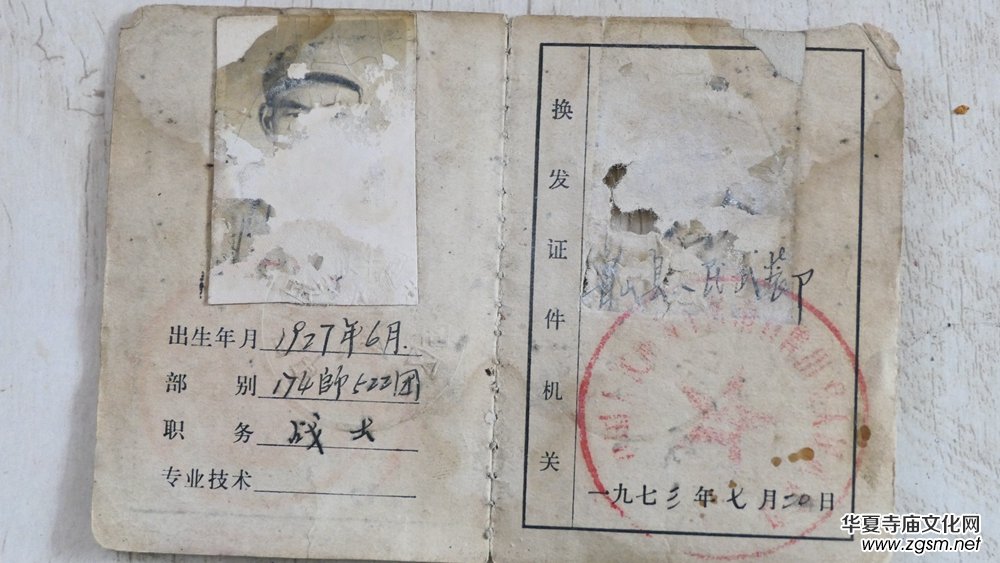 出生年月 1927年6月.
部别 174師522团
职务 战士
专业技术
换发证件机关
县人民武装部
一九七三年七月二0日
华夏寺庙文化网
www.zgsm.net